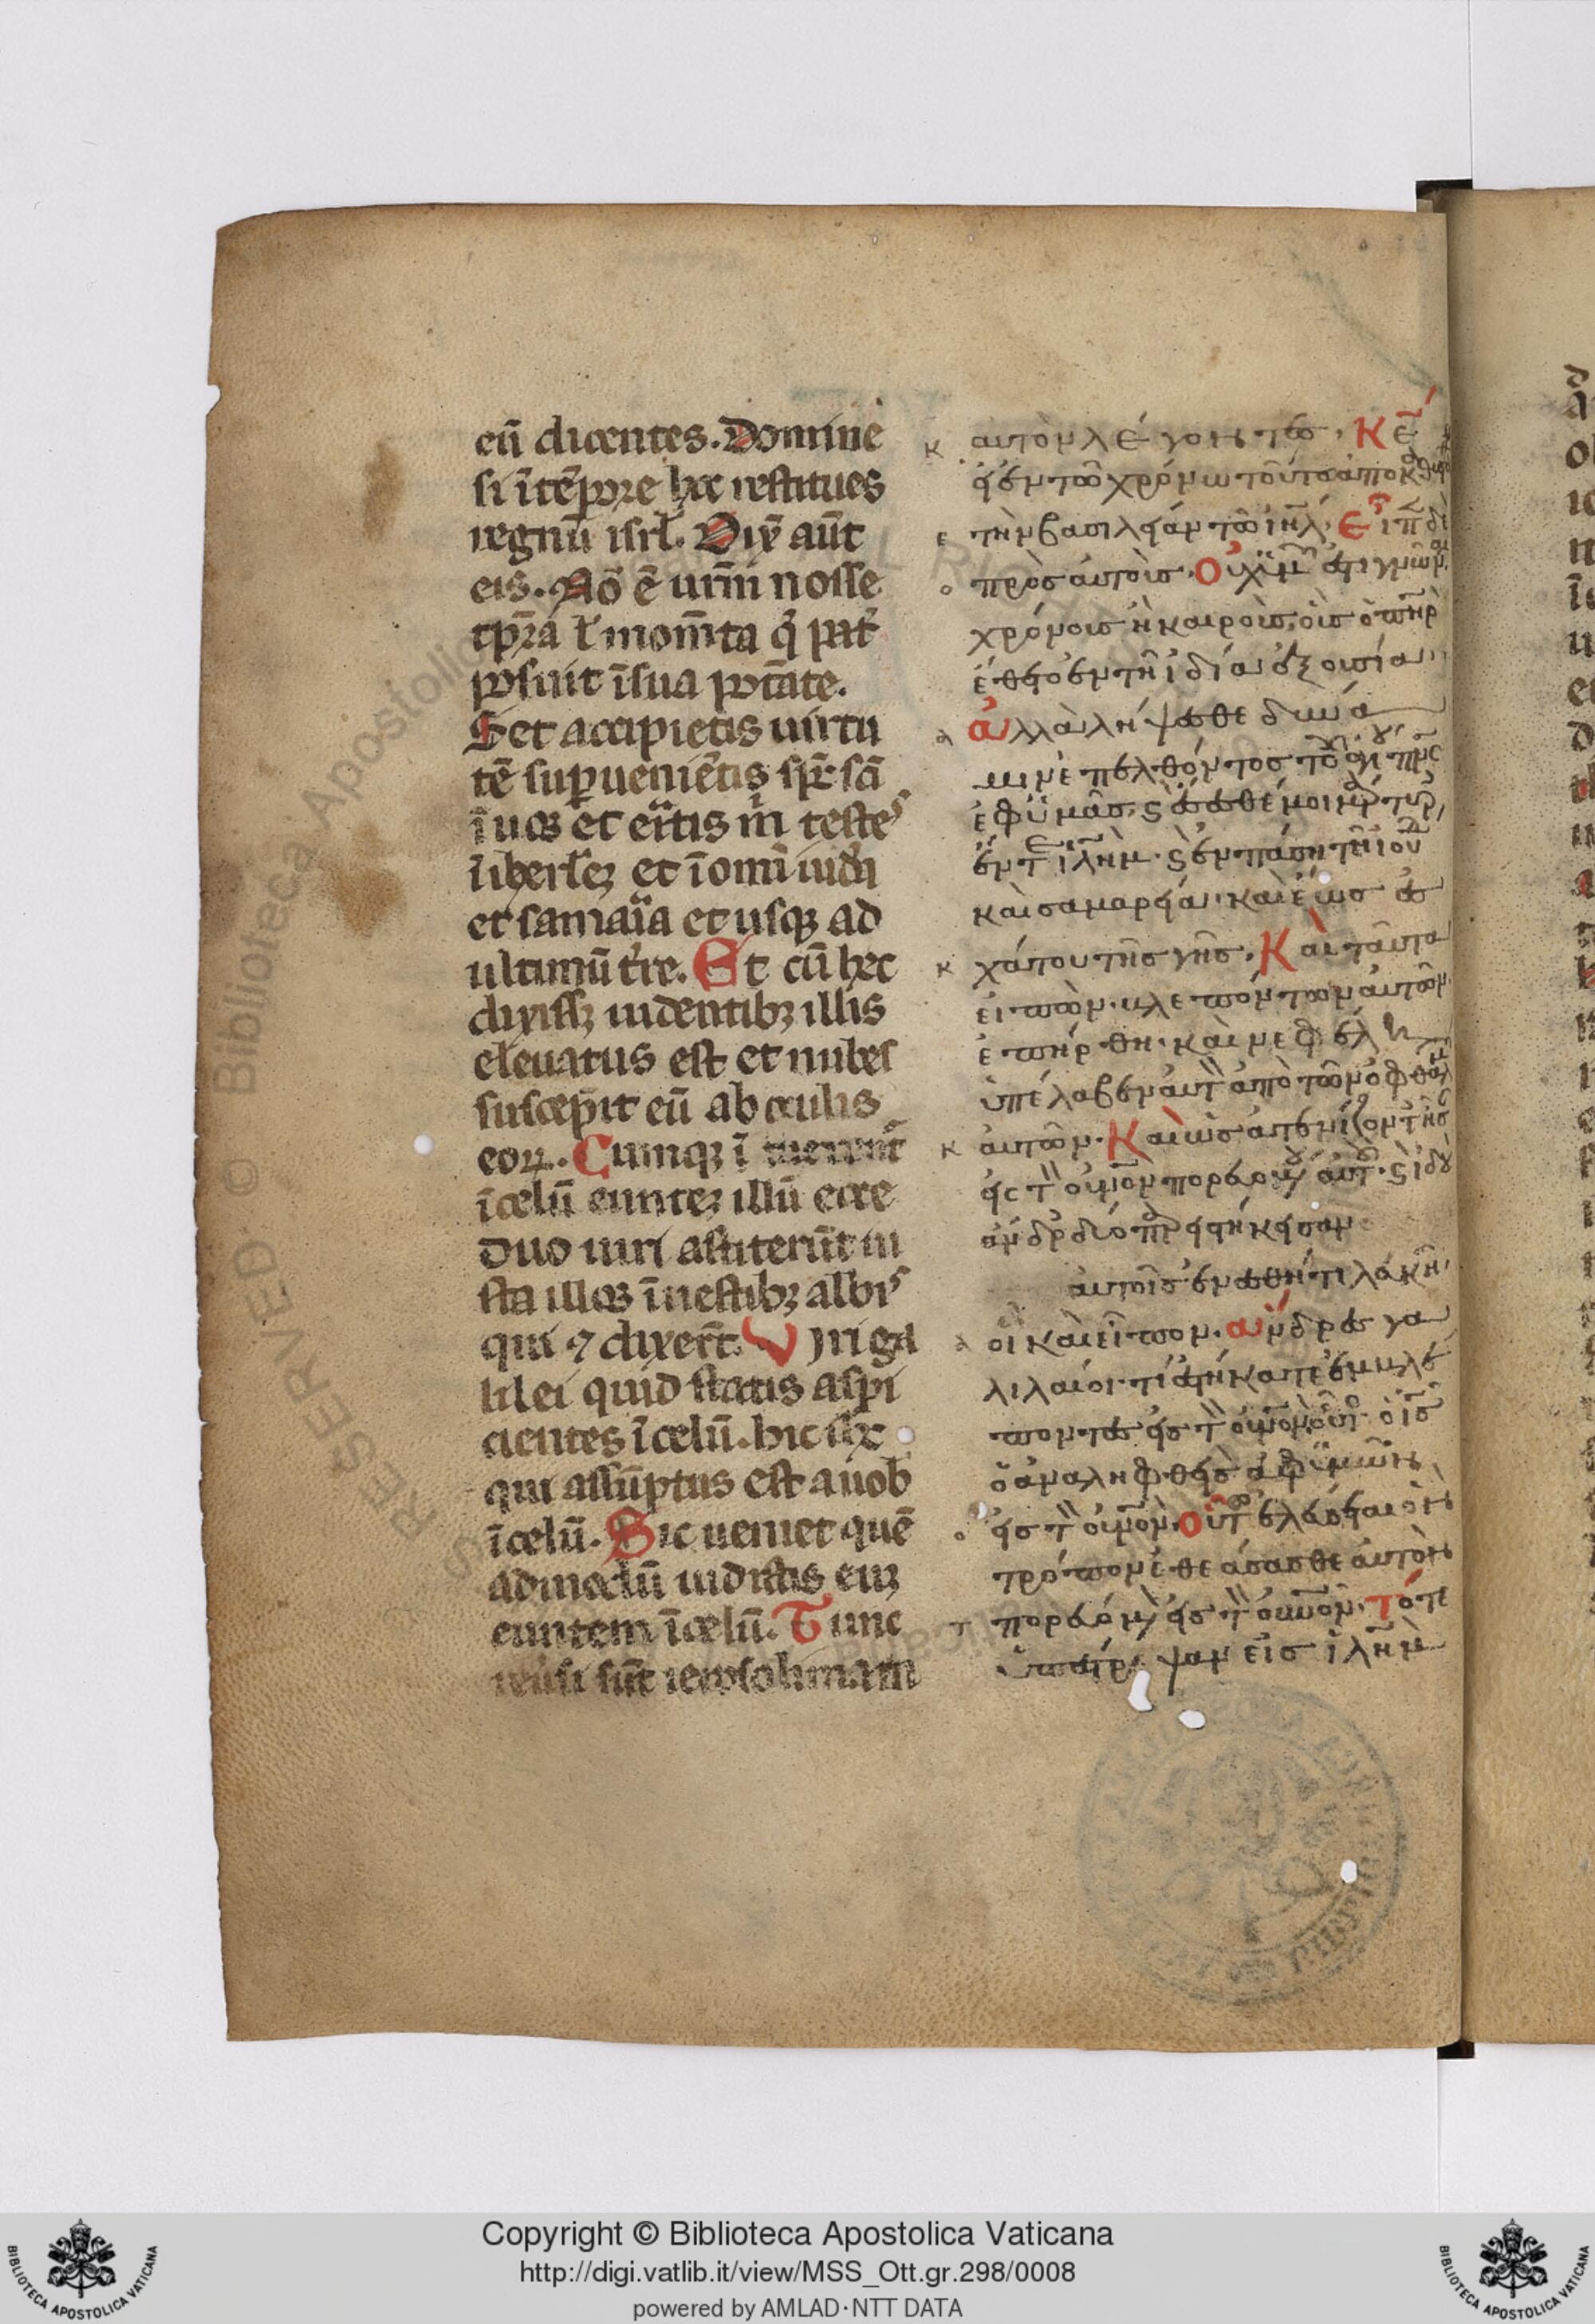 eū dicentes. Domine
si ītēpore hec restitues
regnū isrł. Dix̄ aūt
eis. Nō ē urm̄ nosse
tp̄ra ł mom̄ta q̇ pat̉
posuit īsua potāte.
Set accipietis uirtu
tē superueniētis sp̄c sc̄i
ī uos et eritis m̄ testes
ī iherłez et ī omī iudei
et samaria et usqꝫ ad
ultimū tr̄re. Et cū hec
dixissꝫ uidentibꝫ illis
eleuatus est et nubes
suscepit eū ab oculis
eoꝝ. Cumqꝫ ī tuerent̄
ī celū euntez illū ecce
duo uiri astiterūt iu
sta illos ī uestibꝫ albis
qui ⁊ dixer̄t. Viri ga
lilei quid statis aspi
cientes ī celū. hic ihc̄
qui assūptus est a uob
ī celū. Sic ueniet quē
admodū uidistis euꝫ
euntem ī celū. Tunc
reūsi sūt ierosolimam
αυτὸν λέγοντες. Κε̄
εἰ ἐν τῶ χρόνω τούτω ἀποκαθιστ
τὴν βασιλείαν τῶ ιη̄λ. Εἶπε δὲ
πρὸς αὐτοὺς. Οὐχ ὑμῶν ἐστι γνῶν
χρόνους ἢ καιροὺς, οὓς ὁ πηρ
ἔθετο ἐν τῆ ἰδία ἐξουσία.
ἀλλὰ λήψεσθε δύνα
μιν ἐπελθόντος τοῦ ἁγίου πνς
ἐφ ὑμᾶς, ϛ ἔσεσθέ μοι μάρτυρ
ἔν τε ἰλη̄μ. ϛ ἐν πάση τῆ ἰου
καὶ σαμαρεία. καὶ ἕως ἐσ
χάτου τῆς γῆς. Καὶ ταῦτα
εἰπὼν. βλεπόντων αὐτῶν
ἐπήρθη. καὶ νεφέλη
ὑπέλαβεν αὐτὸν ἀπὸ τῶν ὀφθαλμ
αὐτῶν. Καὶ ὡς ἀτενίζοντες
εἰς τὸν οὐνον πορευομένου αὐτοῦ. ϛ ἰδοὺ
ἄνδρες δύο παρειστήκεισαν
αὐτοῖς ἐν ἐσθῆτι λευκῆ.
οἳ καὶ εἶπον. ἄνδρες γα
λιλαίοι. τί ἑστήκατε ἐμβλέ
ποντες εἰς τὸν οὐνον. οὗτος ὁ ις
ὁ ἀναληφθεὶς ἀφ ὑμῶν
εἰς τὸν οὐνον. οὕτως ἐλεύσεται ὃν
τρόπον ἐθεάσασθε αὐτὸν
πορευόμενον εἰς τὸν οὐνον. τότε
ὑπέστρεψαν εἰς ἰλη̄μ
κ
ε
ο
α
κ
κ
α
ο
τ
Copyright © Biblioteca Apostolica Vaticana
http://digi.vatlib.it/view/MSS_Ott.gr.298/0008
powered by AMLAD·NTT DATA
BIBLIOTECA APOSTOLICA VATICANA
BIBLIOTECA APOSTOLICA VATICANA